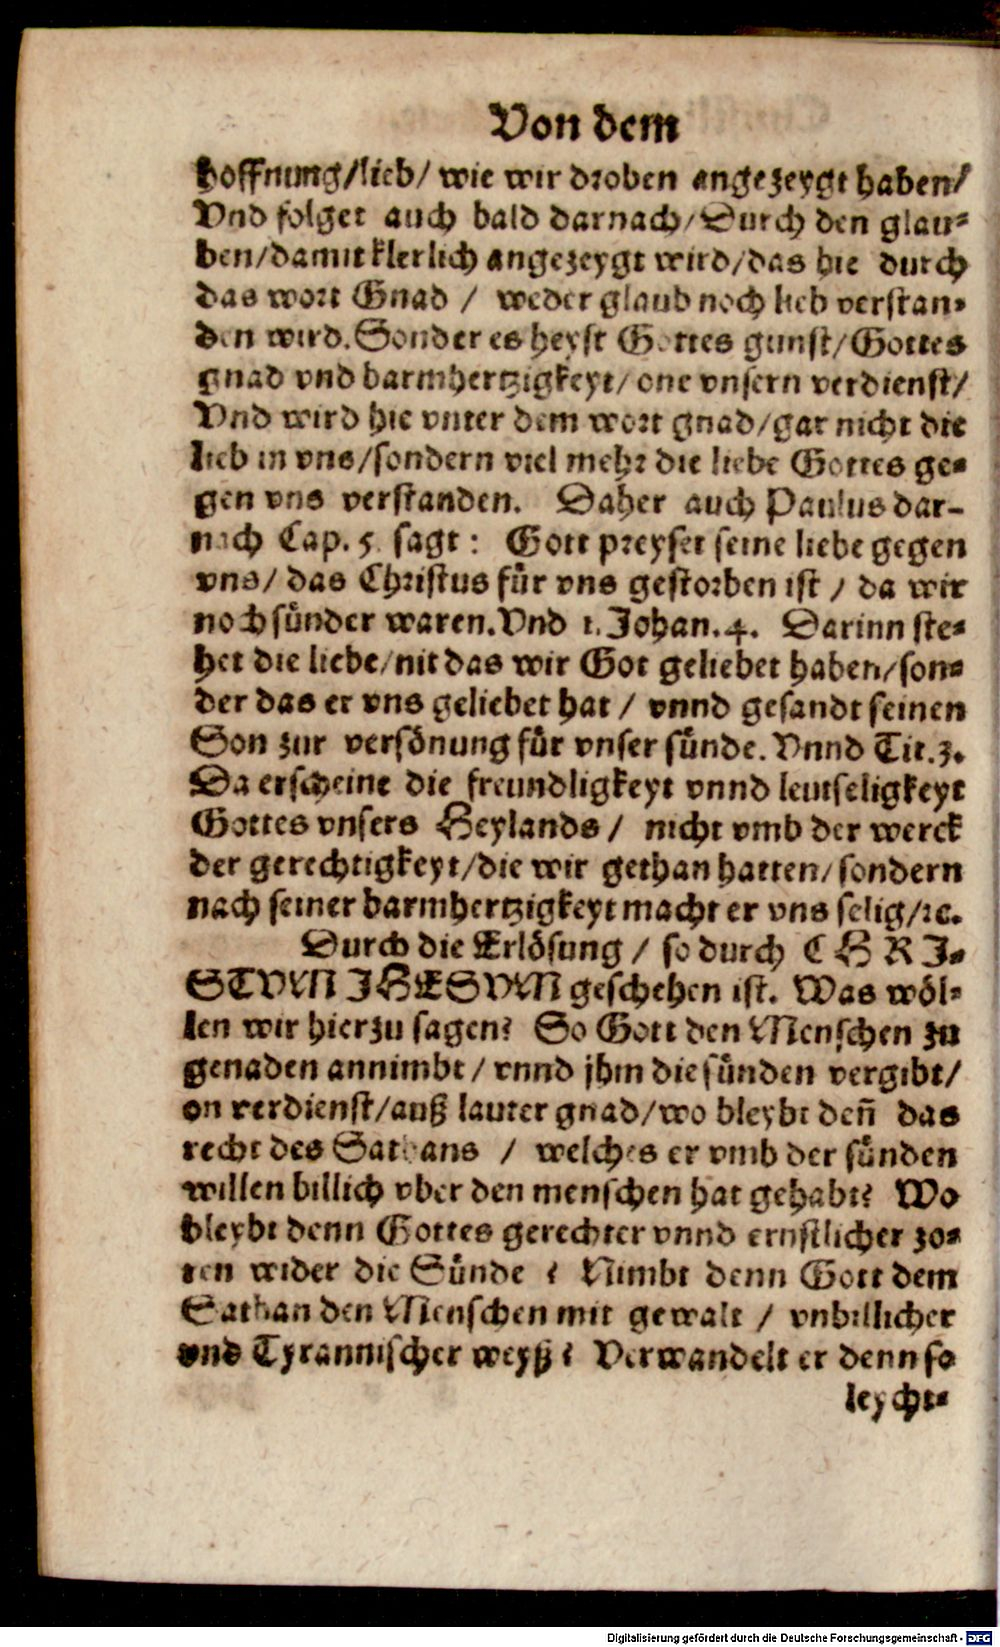 Von dem
hoffnung/lieb/ wie wir droben angezeygt haben/
Vnd folget auch bald darnach/Durch den glau-
ben/damit klerlich angezeygt wird/das hie durch
das wort Gnad / weder glaub noch lieb verstan-
den wird. Sonder es heyst Gottes gunst/Gottes
gnad vnd barmhertzigkeyt/one vnsern verdienst/
Vnd wird hie vnter dem wort gnad/gar nicht die
lieb in vns/sondern viel mehr die liebe Gottes ge-
gen vns verstanden. Daher auch Paulus dar-
nach Cap. 5. sagt: Gott preyset seine liebe gegen
vns/ das Christus für vns gestorben ist / da wir
noch sünder waren. Vnd 1. Johan. 4. Darinn ste-
het die liebe/nit das wir Got geliebet haben/son-
der das er vns geliebet hat / vnnd gesandt seinen
Son zur versönung für vnser sünde. Vnnd Tit. 3.
Da erscheine die freundligkeyt vnnd leutseligkeyt
Gottes vnsers Heylands / nicht vmb der werck
der gerechtigkeyt/die wir gethan hatten/sondern
nach seiner barmhertzigkeyt macht er vns selig/ꝛc.
Durch die Erlösung / so durch CHRI-
STVM IHESVM geschehen ist. Was wöl-
len wir hierzu sagen? So Gott den Menschen zu
genaden annimbt / vnnd jhm die sünden vergibt/
on verdienst/auß lauter gnad/wo bleybt deñ das
recht des Sathans / welches er vmb der sünden
willen billich vber den menschen hat gehabt? Wo
bleybt denn Gottes gerechter vnnd ernstlicher zo-
ren wider die Sünde ? Nimbt denn Gott dem
Sathan den Menschen mit gewalt / vnbillicher
vnd Tyrannischer weyß? Verwandelt er denn so
leycht-
Digitalisierung gefördert durch die Deutsche Forschungsgemeinschaft - DFG